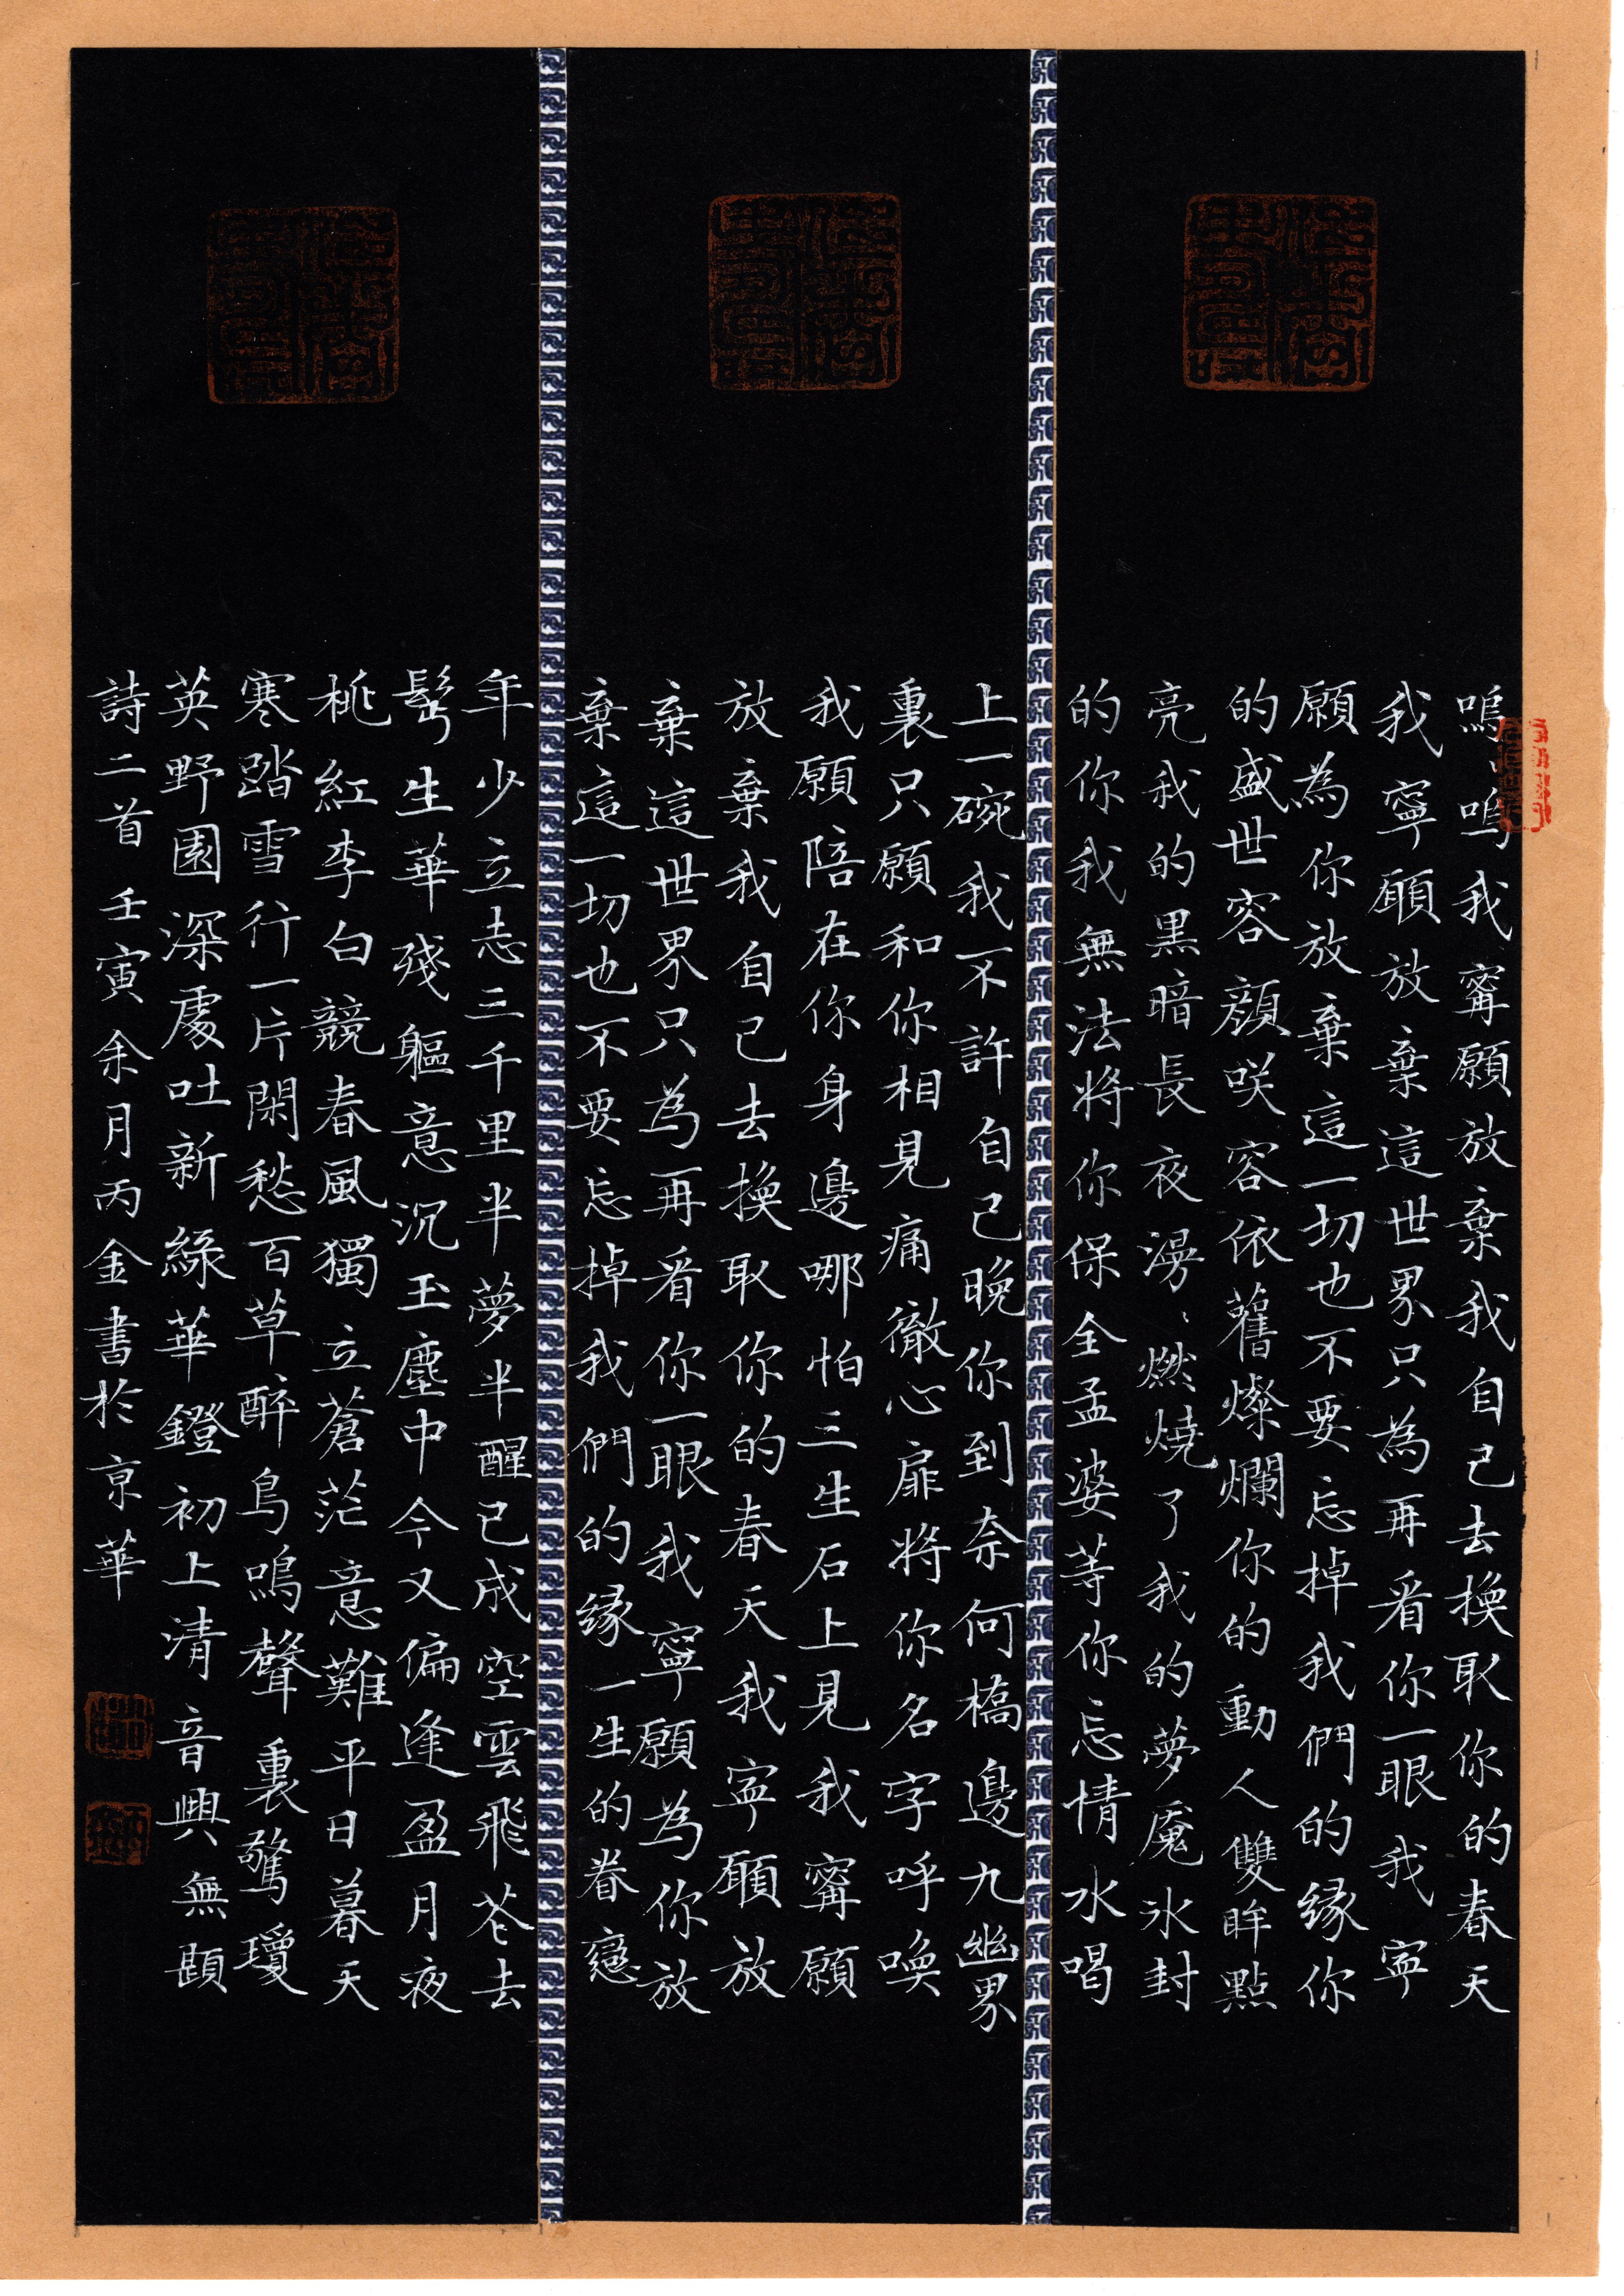 嗚、嗚我寗願放棄我自己去換取你的春天
我寧願放棄這世界只為再看你一眼我寧
願為你放棄這一切也不要忘掉我們的緣你
的盛世容顏咲容依舊燦爛你的動人雙眸點
亮我的黑暗長夜漫、燃燒了我的夢魘冰封
的你我無法將你保全孟婆等你忘情水喝
上一碗我不許自己晚你到奈何橋邊九幽界
裏只願和你相見痛徹心扉將你名字呼喚
我願陪在你身邊哪怕三生石上見我寗願
放棄我自己去換取你的春天我寧願放
棄這世界只為再看你一眼我寧願為你放
棄這一切也不要忘掉我們的緣一生的眷戀
年少立志三千里半夢半醒已成空雲飛苍去
髩生華殘軀意沉玉塵中今又偏逢盈月夜
桃紅李白競春風獨立蒼茫意難平日暮天
寒踏雪行一片閑愁百草醉鳥鳴聲裏驚瓊
英野園深處吐新綠華鐙初上清音興無題
詩二首壬寅余月丙金書於京華